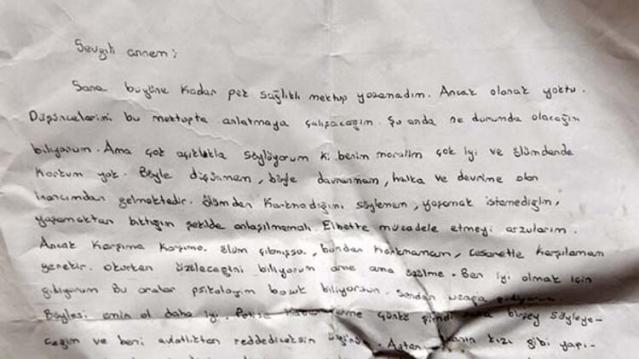 Sevgili annem;
Sana bugüne kadar pek sağlıklı mektup yazamadım. Ancak olanak yoktu.
Düşüncelerimi bu mektupta anlatmaya çalışacağım. Şu anda ne durumda olacağın
biliyorum. Ama çok açıklıkla söylüyorum ki benim moralim çok iyi ve ölümdende
korkum yok. Böyle düşünmem, böyle davranmam, halka ve devrime olan
inancımdan gelmektedir. Ölümden korkmadığını söylemem, yaşamak istemediğim,
yaşamaktan bıktığım şekilde anlaşılmamalı. Elbette mücadele etmeyi arzularım.
Ancak karşıma ölüm çıkmışsa, bundan korkmamam, cesaretle karşılamam
gerekir. Okurken üzeleceğini biliyorum ama üzülme. Ben iyi olmak için
gidiyorum Bu aralar psikolojim bozuk biliyorsun. Senden uzağa
Böylesi emin ol daha iyi. çünkü şimdi birşey söyleye-
ceğim ve beni evlatlıktan reddediceksin kızı gibi yapı-